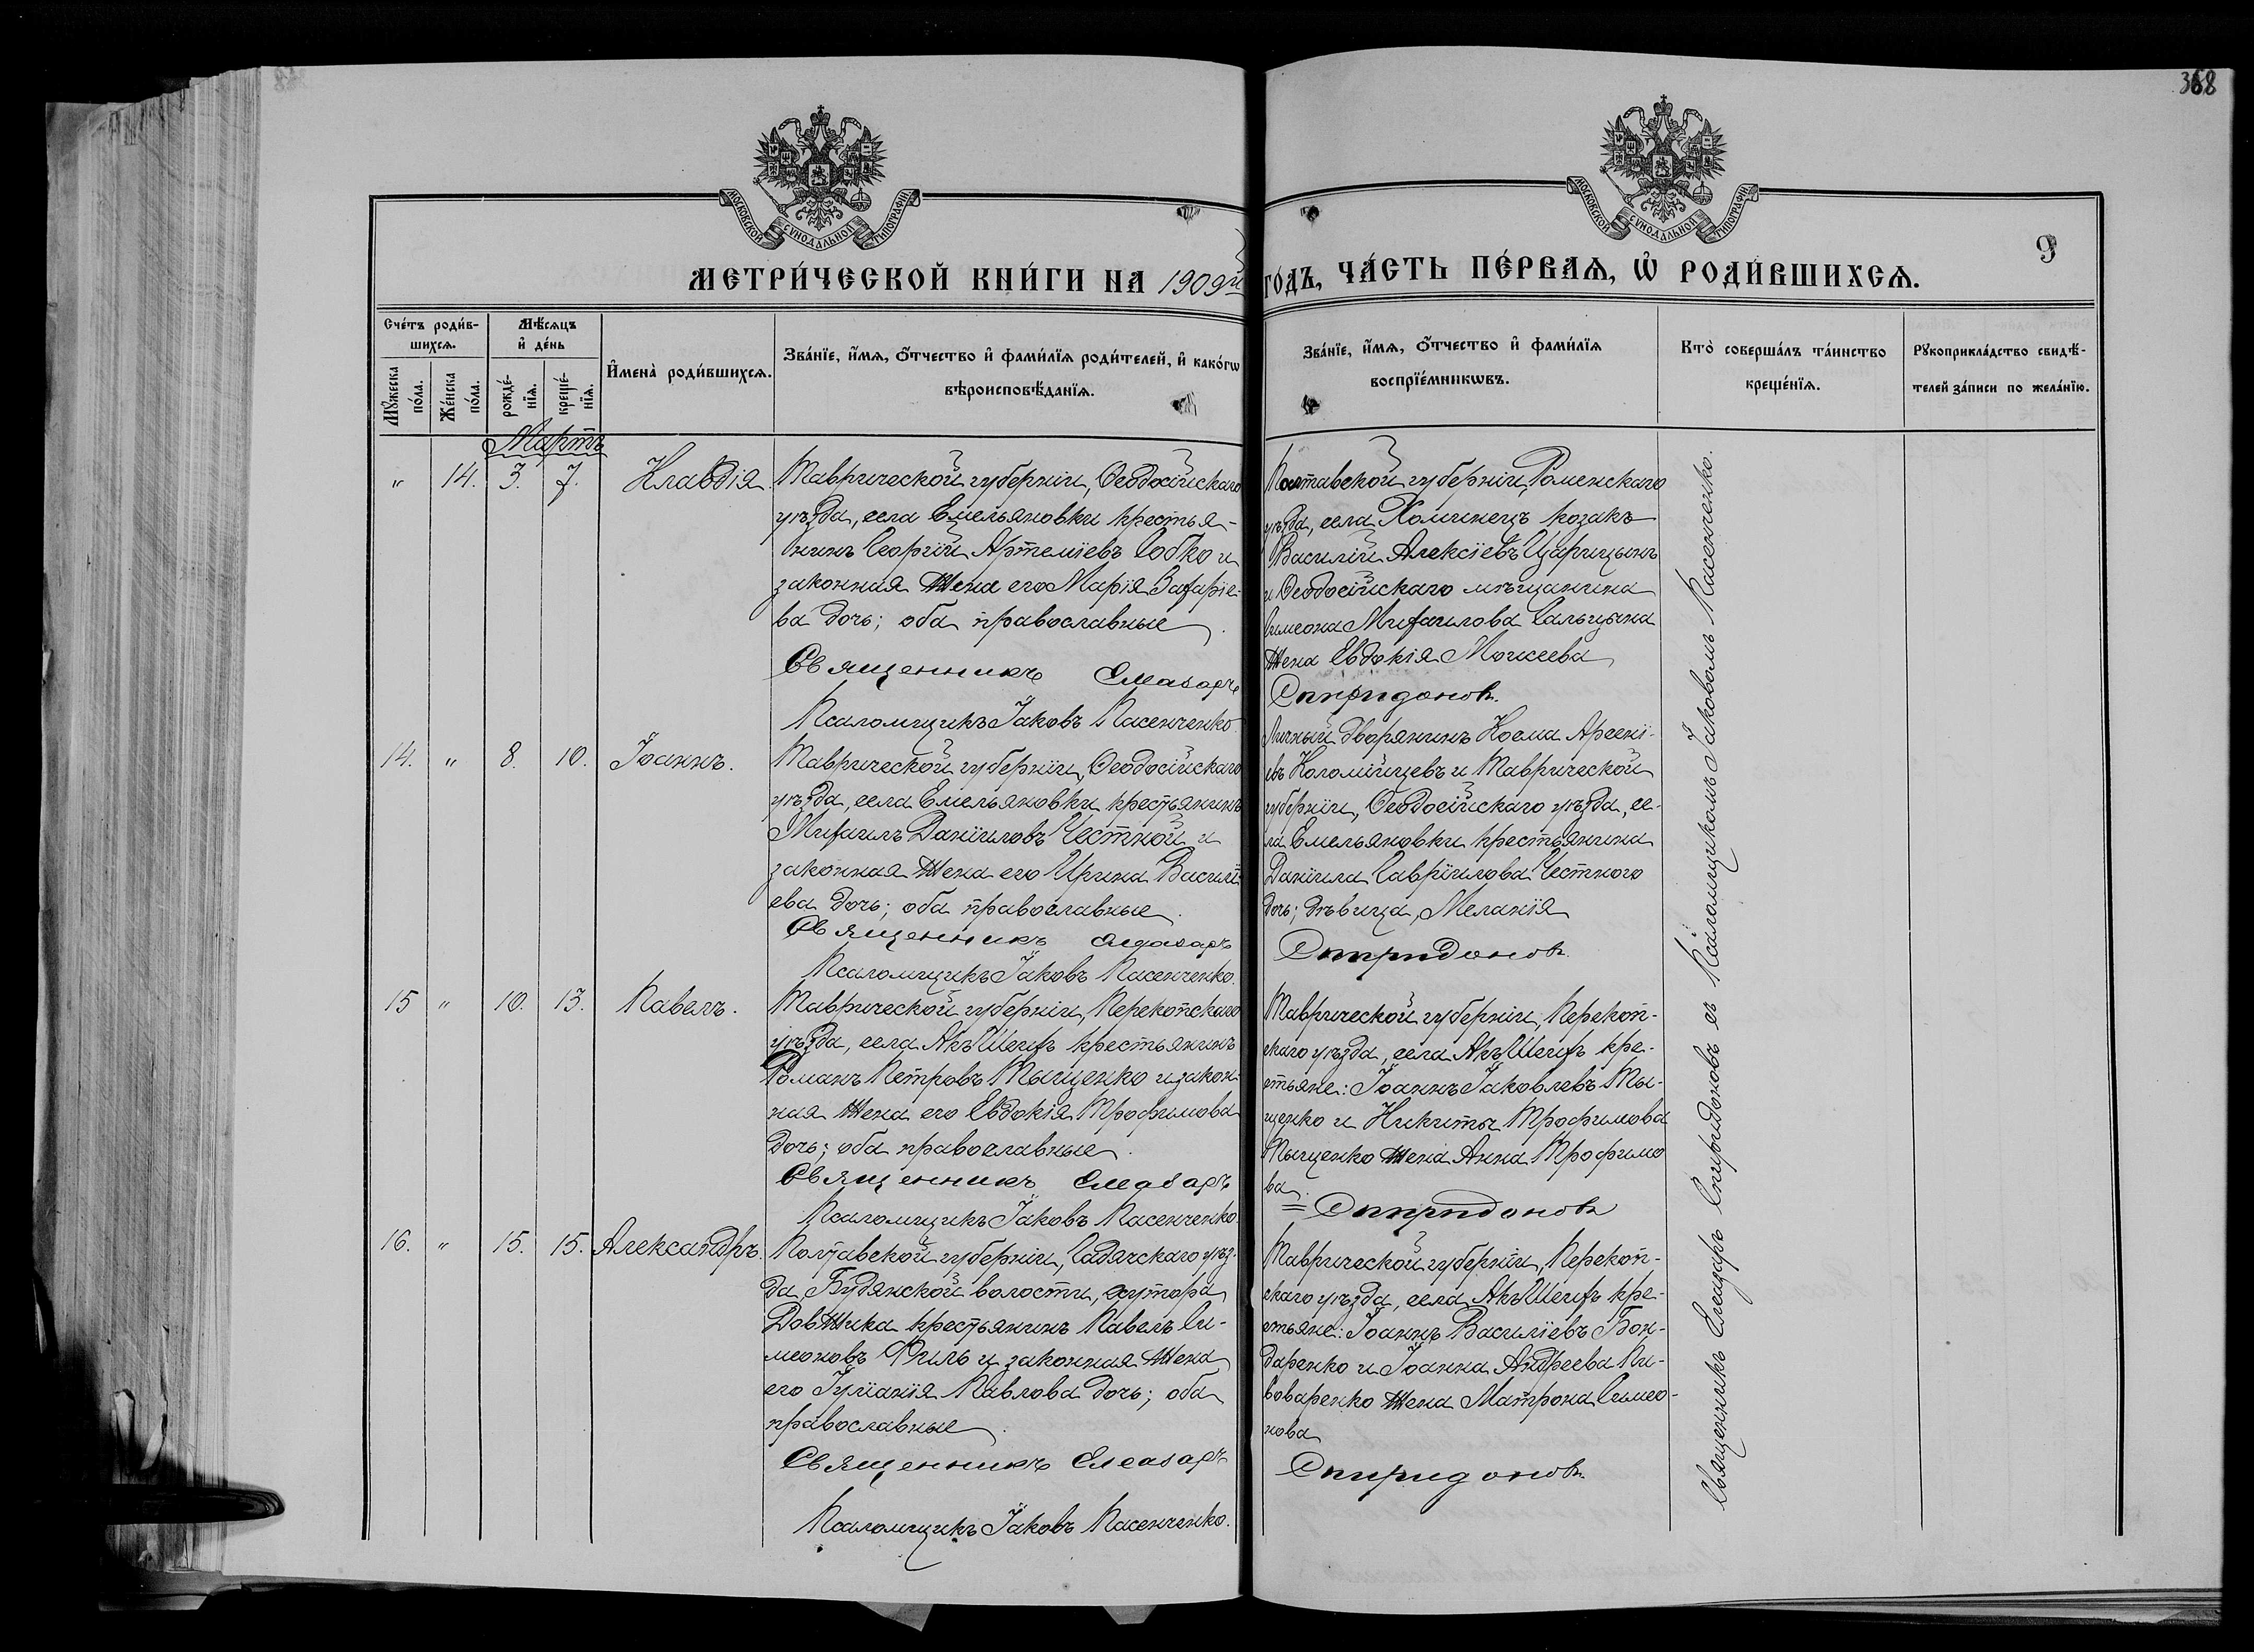 368
МОСКОВСКОЙ СѴНОДАЛЬНОЙ ТИПОГРАФІИ
МОСКОВСКОЙ СѴНОДАЛЬНОЙ ТИПОГРАФІИ
9
МЕТРИ́ЧЕСКОЙ КНИ́ГИ НА 1909й ГО́ДЪ, ЧА́СТЬ ПЕ́РВАѦ, Ѡ҆ РОДИ́ВШИХСѦ.
Сче́тъ роди́в-
шихсѧ.
Мꙋ́жеска
по́ла.
Же́нска
по́ла.
Мѣ́сѧцъ
и҆ де́нь
рожде́-
нїѧ.
креще́-
нїѧ.
И҆мена̀ роди́вшихсѧ.
Зва́нїе, и҆́мѧ, ѻ҆́тчество и҆ фами́лїѧ роди́телей, и҆ како́гѡ
вѣроисповѣ́данїѧ.
Зва́нїе, и҆́мѧ, ѻ҆́тчество и҆ фами́лїѧ
воспрїе́мникѡвъ.
Кто̀ соверша́лъ та́инство
креще́нїѧ.
Рꙋкоприкла́дство свидѣ́-
телей за́писи по жела́нїю.
Мартъ
" 14. 3. 7. Клавдія.
Таврической губерніи, Ѳеодосійскаго
уѣзда, села Емельяновки крестья-
нинъ Георгій Артеміевъ Собко и
законная жена его Марія Захаріе-
ва дочь; оба православные.
Священникъ Елеазаръ
Псаломщикъ Іаковъ Пасенченко.
Полтавской губерніи, Роменскаго
уѣзда, села Хоминецъ козакъ
Василій Алексіевъ Царицынъ
и Ѳеодосійскаго мѣщанина
Симеона Михаилова Сальцына
жена Евдокія Моисеева
Спиридоновъ.
14. " 8. 10. Іоаннъ.
Таврической губерніи, Ѳеодосійскаго
уѣзда, села Емельяновки крестьянинъ
Михаилъ Даніиловъ Честной и
законная жена его Ирина Василі-
ева дочь; оба православные.
Священникъ Елеазаръ
Псаломщикъ Іаковъ Пасенченко.
Личный дворянинъ Косма Арсені-
евъ Коломійцевъ и Таврической
губерніи, Ѳеодосійскаго уѣзда, се-
ла Емельяновки крестьянина
Даніила Гавріилова Честного
дочь; дѣвица, Меланія
Спиридоновъ.
15 " 10. 13. Павелъ.
Таврической губерніи, Перекопскаго
уѣзда, села Акъ Шеихъ крестьянинъ
Романъ Петровъ Тыщенко и закон-
ная жена его Евдокія Трофимова
дочь; оба православные.
Священникъ Елеазаръ
Псаломщикъ Іаковъ Пасенченко.
Таврической губерніи, Перекоп-
скаго уѣзда, села Акъ Шеихъ кре-
стьяне: Іоаннъ Іаковлевъ Ты-
щенко и Никиты Трофимова
Тыщенко жена Анна Трофимо
ва.
= Спиридоновъ
16. " 15. 15. Александръ.
Полтавской губерніи, Гадячскаго уѣз-
да, Будянской волости, хутора
Довжика крестьянинъ Павелъ Си-
меоновъ Филь и законная жена
его Іуліанія Павлова дочь; оба
православные.
Священникъ Елеазаръ
Псаломщикъ Іаковъ Пасенченко.
Таврической губерніи, Перекоп-
скаго уѣзда, села Акъ Шеихъ кре-
стьяне: Іоаннъ Василіевъ Бон-
даренко и Іоанна Андреева Пи-
воваренко жена Матрона Симео-
нова
Спиридоновъ.
Священникъ Елеазаръ Спиридоновъ съ Псаломщикомъ Іаковомъ Пасенченко.